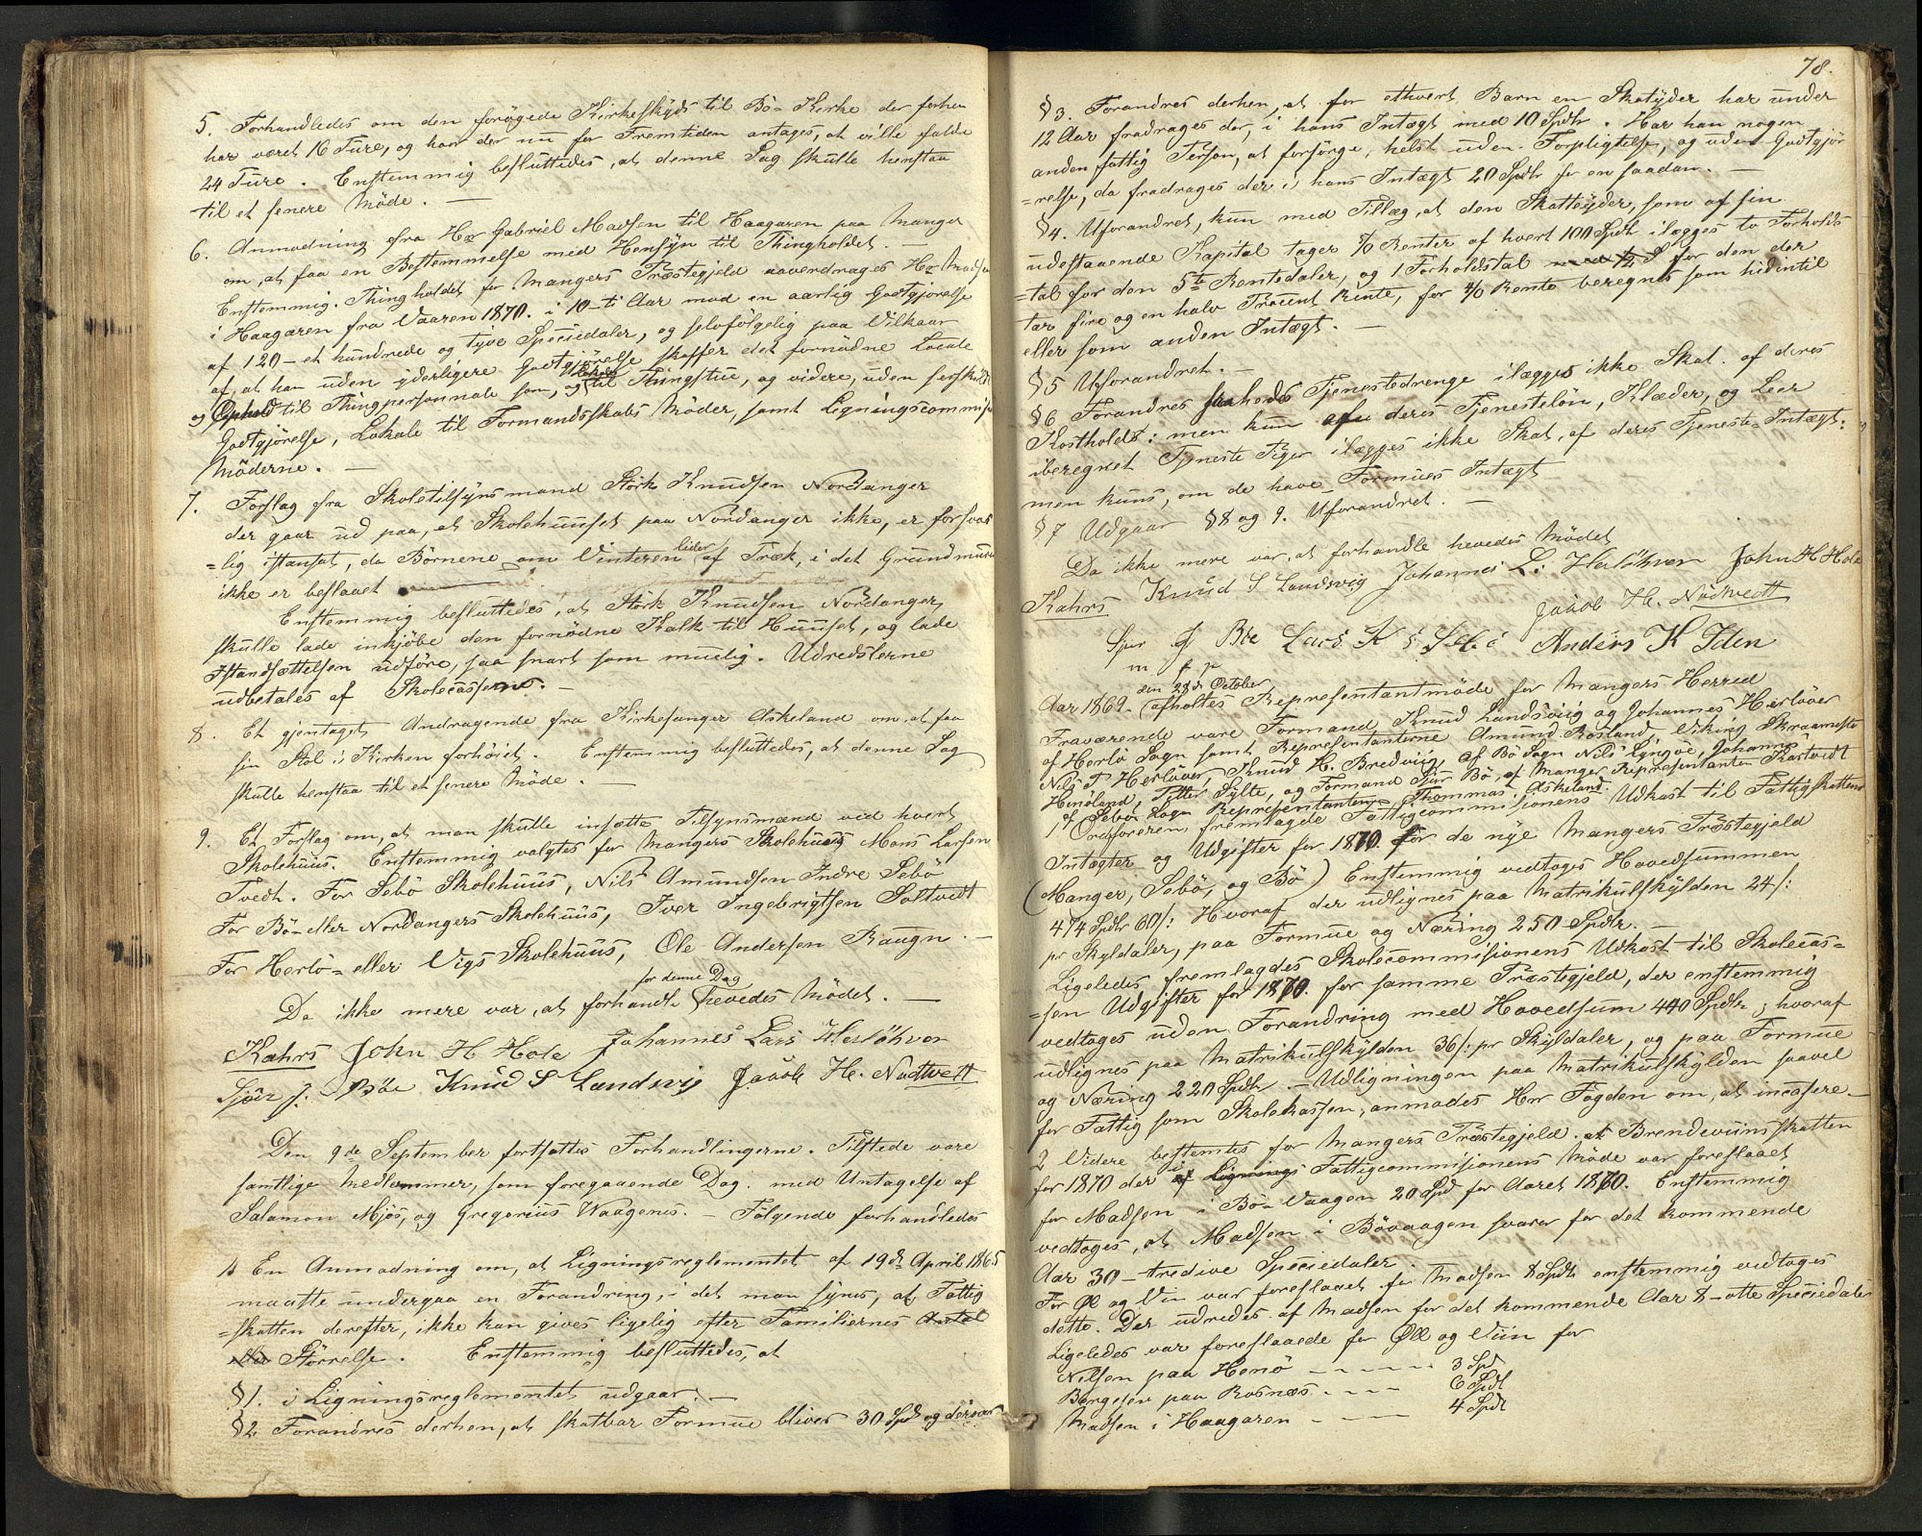 5. Forhandledes om den forøgede Kirkeskyds til Bø Kirke der forhen
har været 16 Ture, og hvor der nu for Fremtiden antages, at ville falde
24 Ture. Enstemmig besluttedes, at denne Sag skulle henstaa
til et senere Møde. —
6. Anmodning fra Hr Gabriel Madsen til Haagaren paa Manger
om, at faa en Bestemmelse med Hensyn til Thingholdet. —
Enstemmig. Thingholdet for Mangers Præstegjeld overdrages Hr Madsen
i Haagaren fra Vaaren 1870. i 10-ti Aar mod en aarlig Godtgjørelse
af 120 - et hundrede og tyve Speciedaler, og selvfølgelig paa Vilkaar
af, at han uden yderligere Godtgjørelse skaffer det fornødne Locale
og Ophold til Thingpersonnale som, og til Thingstue, og videre, uden særskilt
Godtgjørelse, Lokale til Formandsskabs Møder, samt Ligningscommis
Møderne. —
7. Forslag fra Skoletilsynsmand Störk Knudsen Nordanger
der gaar ud paa, at Skolehuuset paa Nordanger ikke, er forsvar
=lig istandsat, da Børnene om Vinteren lider af Træk, i det Grundmuren
ikke er beslaaet
Enstemmig besluttedes, at Störk Knudsen Nordanger
skulle lade inkjøbe den fornødne Kalk til Huuset, og lade
Istandsættelsen udføre, saa snart som muelig. Udredslerne
udbetales af Skolecasserne. —
8. Et gjentaget Andragende fra Kirkesanger Askeland om, at faa
sin Stol i Kirken forhøiet. Enstemmig besluttedes, at denne Sag
skulle henstaa til et senere Møde. —
9. Et Forslag om, at man skulle insætte Tilsynsmænd ved hvert
Skolehuus. Enstemmig valgtes for Mangers Skolehuus Mons Larsen
Tvedt. For Sebø Skolehuus, Nils Amundsen Indre Sebø
For Bø- eller Nordangers Skolehuus, Iver Ingebrigtsen Soltvedt
For Herlø- eller Vigs Skolehuus, Ole Andersen Raugn. —
Da ikke mere var, at forhandle for denne Dag hevedes Mødet. —
Kahrs John H Hole Johannes Lars Herløhver
Sjür J: Böe Knud S Landsvig Jacob H. Nødtvett
Den 9de September fortsattes Forhandlingerne. Tilstede vare
samtlige Medlemmer, som foregaaende Dag, med Untagelse af
Salamon Mjøs, og Gregorius Waagenes. — Følgende forhandledes
1. En Anmodning om, at Ligningsreglementet af 19de April 1865
maatte undergaa en Forandring, i det man synes, at Fattig
=skatten derefter, ikke kan gives ligelig efter Familiernes Antal
eller Størrelse. Enstemmig besluttedes, at
§1. i Ligningsreglementet udgaar. —
§2 Forandres derhen, at skatbar Formue bliver 30 Spd og derover
78.
§3. Forandres derhen, at for ethvert Barn en Skatyder har under
12 Aar fradrages der, i hans Intægt med 10 Spdlr. Har han nogen
anden fattig Person, at forsørge, helst uden Forpligtelse, og uden Godtgjør
=relse, da fradrages der i hans Intægt 20 Spdlr for en saadan. —
§4. Uforandret, kun med Tillæg, at den Skatteyder, som af sin
udestaaende Kapital tager % Renter af hvert 100 Spdlr ilægges to Forholds
=tal for den 5te Rentedaler, og 1 Forholdstal med ½ S for den der
tar fire og en halv Procent Rente, for 4% Rente beregnes som hidintil
eller som anden Intægt. —
§5 Uforandret. —
§6 Forandres saaledes Tjenestedrenge ilægges ikke Skat af deres
Kostholds: men kun af deres Tjenesteløn, Klæder, og Leer
iberegnet Tjeneste Piger ilægges ikke Skat, af deres Tjeneste-Intægt:
men kuns, om de have Formues Intægt
§7 Udgaar §8 og 9. Uforandret. —
Da ikke mere var, at forhandle hevedes Mødet
Kahrs Knud S Landsvig Johannes L: Herløhver John H Hole
Jacob H. Nødtvedtt
Sjur J Böe Lars K S Sebö Anders K Iden
m f p
Aar 1869 den 28de October afholtes Representantmøde for Mangers Herred
Fraværende vare Formand Knud Landsvig og Johannes Herløver
af Herlø Sogn samt Representanterne Amund Røsland, Viking Skraamestø
Nils T Herløver, Knud H. Bredvig, af Bø Sogn Nils Lyngøe, Johannes
Henøland, Petter Sylte, og Formand Sjur Bø, af Manger Representanten Kartveidt
af Sebø Sogn Representanten Thommas Askeland.
1 Ordføreren fremlagde Fattigcommissionens Udkast til Fattigskattens
Intægter og Udgifter for 1870. for de nye Mangers Præstegjeld
(Manger, Sebø, og Bø) Enstemmig vedtoges Hovedsummen
474 Spdlr 60/: Hvoraf der udlignes paa Matrikulskylden 24/:
pr Skyldaler, paa Formue og Næring 250 Spdlr. —
Ligeledes fremlagdes Skolecommisionens Udkast til Skolecas=
=sen Udgifter for 1870. for samme Præstegjeld, der enstemmig
vedtoges uden Forandring med Hovedsum 440 Spdlr; hvoraf
udlignes paa Matrikulskylden 36/: pr Skyldaler, og paa Formue
og Næring 220 Spdlr. — Udligningen paa Matrikulskylden saavel
for Fattig som Skolekassen, anmodes Herr Fogden om, at incasere. —
2 Videre bestemtes for Mangers Præstegjeld at Brendeviinsskatten
for 1870 der i af Lignings Fattigcommisionens Møde var foreslaaet
for Madsen i Bø-Vaagen 20 Spd for Aaret 1870. Enstemmig
vedtoges, at Madsen i Bøvaagen svarer for det kommende
Aar 30 - tredive Speciedaler
For Øl og Vin var foreslaaet for Madsen 8 Spdlr enstemmig vedtoges
dette. Der udredes af Madsen for det kommende Aar 8 - otte Speciedaler
Ligeledes var foreslaaede for Øll og Viin for
Nilsen paa Henø - - - - - 3 Spd
Børgesen paa Rosnæs - - - - 6 Spdl
Madsen i Haagaren - - - - 4 Spdl